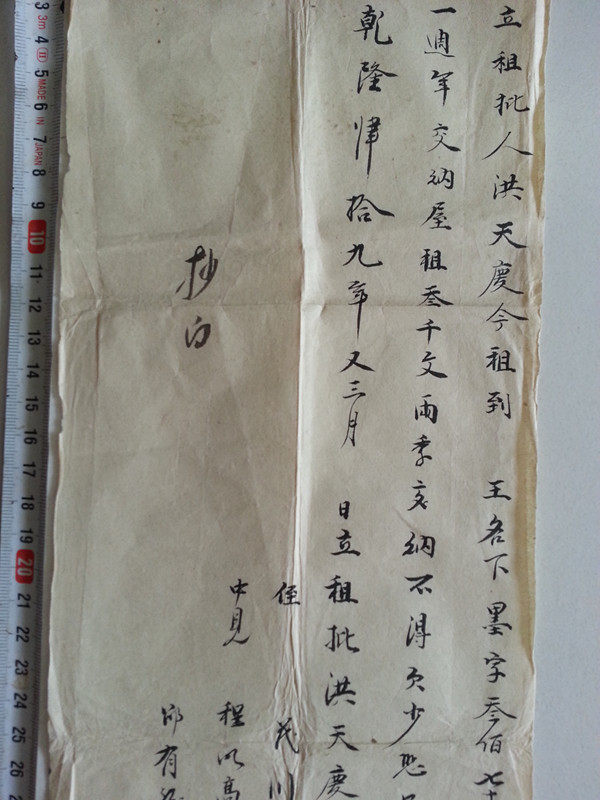 立租批人洪天慶今租到 王名下墨字叁佰七十
一週年交納屋租叁千文兩季交納不得欠少恐
乾隆肆拾九年又三月 日立租批洪天慶
侄 茂
中見 程以高
邱有
抄白
3 3m 4 5 MADE 6 IN 7 JAPAN 8 9 10 11 12 13 14 15 16 17 18 19 20 21 22 23 24 25 26